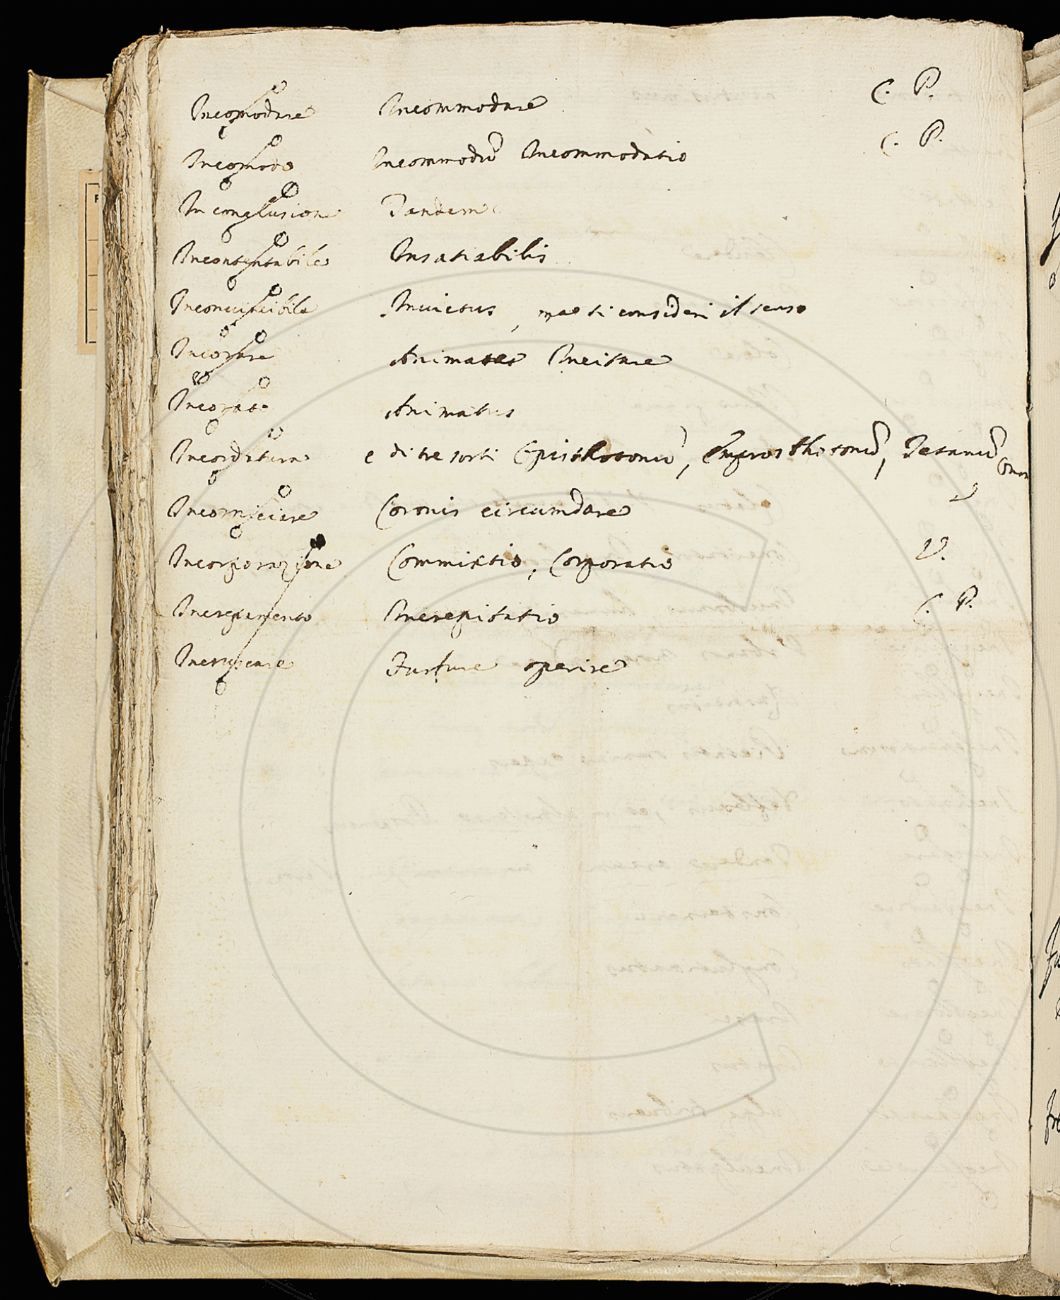 Incomodare Incommodare C. P.
Incomodo Incommodũ Incommodatio C. P.
In conclusione Tandem
Incontentabile Insatiabilis
Inconuincibile Inuictus, ma si consideri il senso
Incorare Animare Incitare
Incorato Animatus
Incordatura e di tre sorti Opisthotonũ, Emprosthotonũ, Tetanũ
Incorniciare Coronis circumdare V
Incorporazione Commixtio, Corporatio V.
Increpamento Increpitatio C. P.
Incruscare Furfure operire